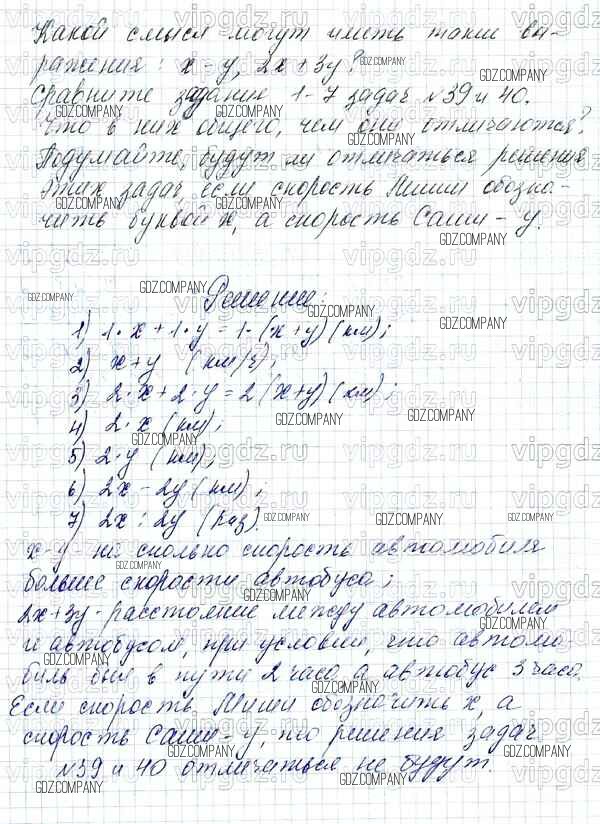 Какой смысл могут иметь такие вы-
ражения: x-y, 2x+3y?
Сравните задание 1-7 задач №39 и 40.
Что в них общего, чем они отличаются?
Подумайте, будут ли отличаться решения
этих задач, если скорость Миши обозна-
чить буквой x, а скорость Саши - y.
Решение:
1) 1·x+1·y=1·(x+y)(км);
2) x+y (км/ч);
3) 2·x+2·y=2(x+y)(км);
4) 2·x (км);
5) 2·y (км);
6) 2x-2y (км);
7) 2x:2y (раз).
x-y на сколько скорость автомобиля
больше скорости автобуса;
2x+3y - расстояние между автомобилем
и автобусом, при условии, что автомо-
биль был в пути 2 часа, а автобус 3 часа.
Если скорость Миши обозначить x, а
скорость Саши - y, то решения задач
№39 и 40 отличаться не будут.
vipgdz.ru
GDZ.COMPANY